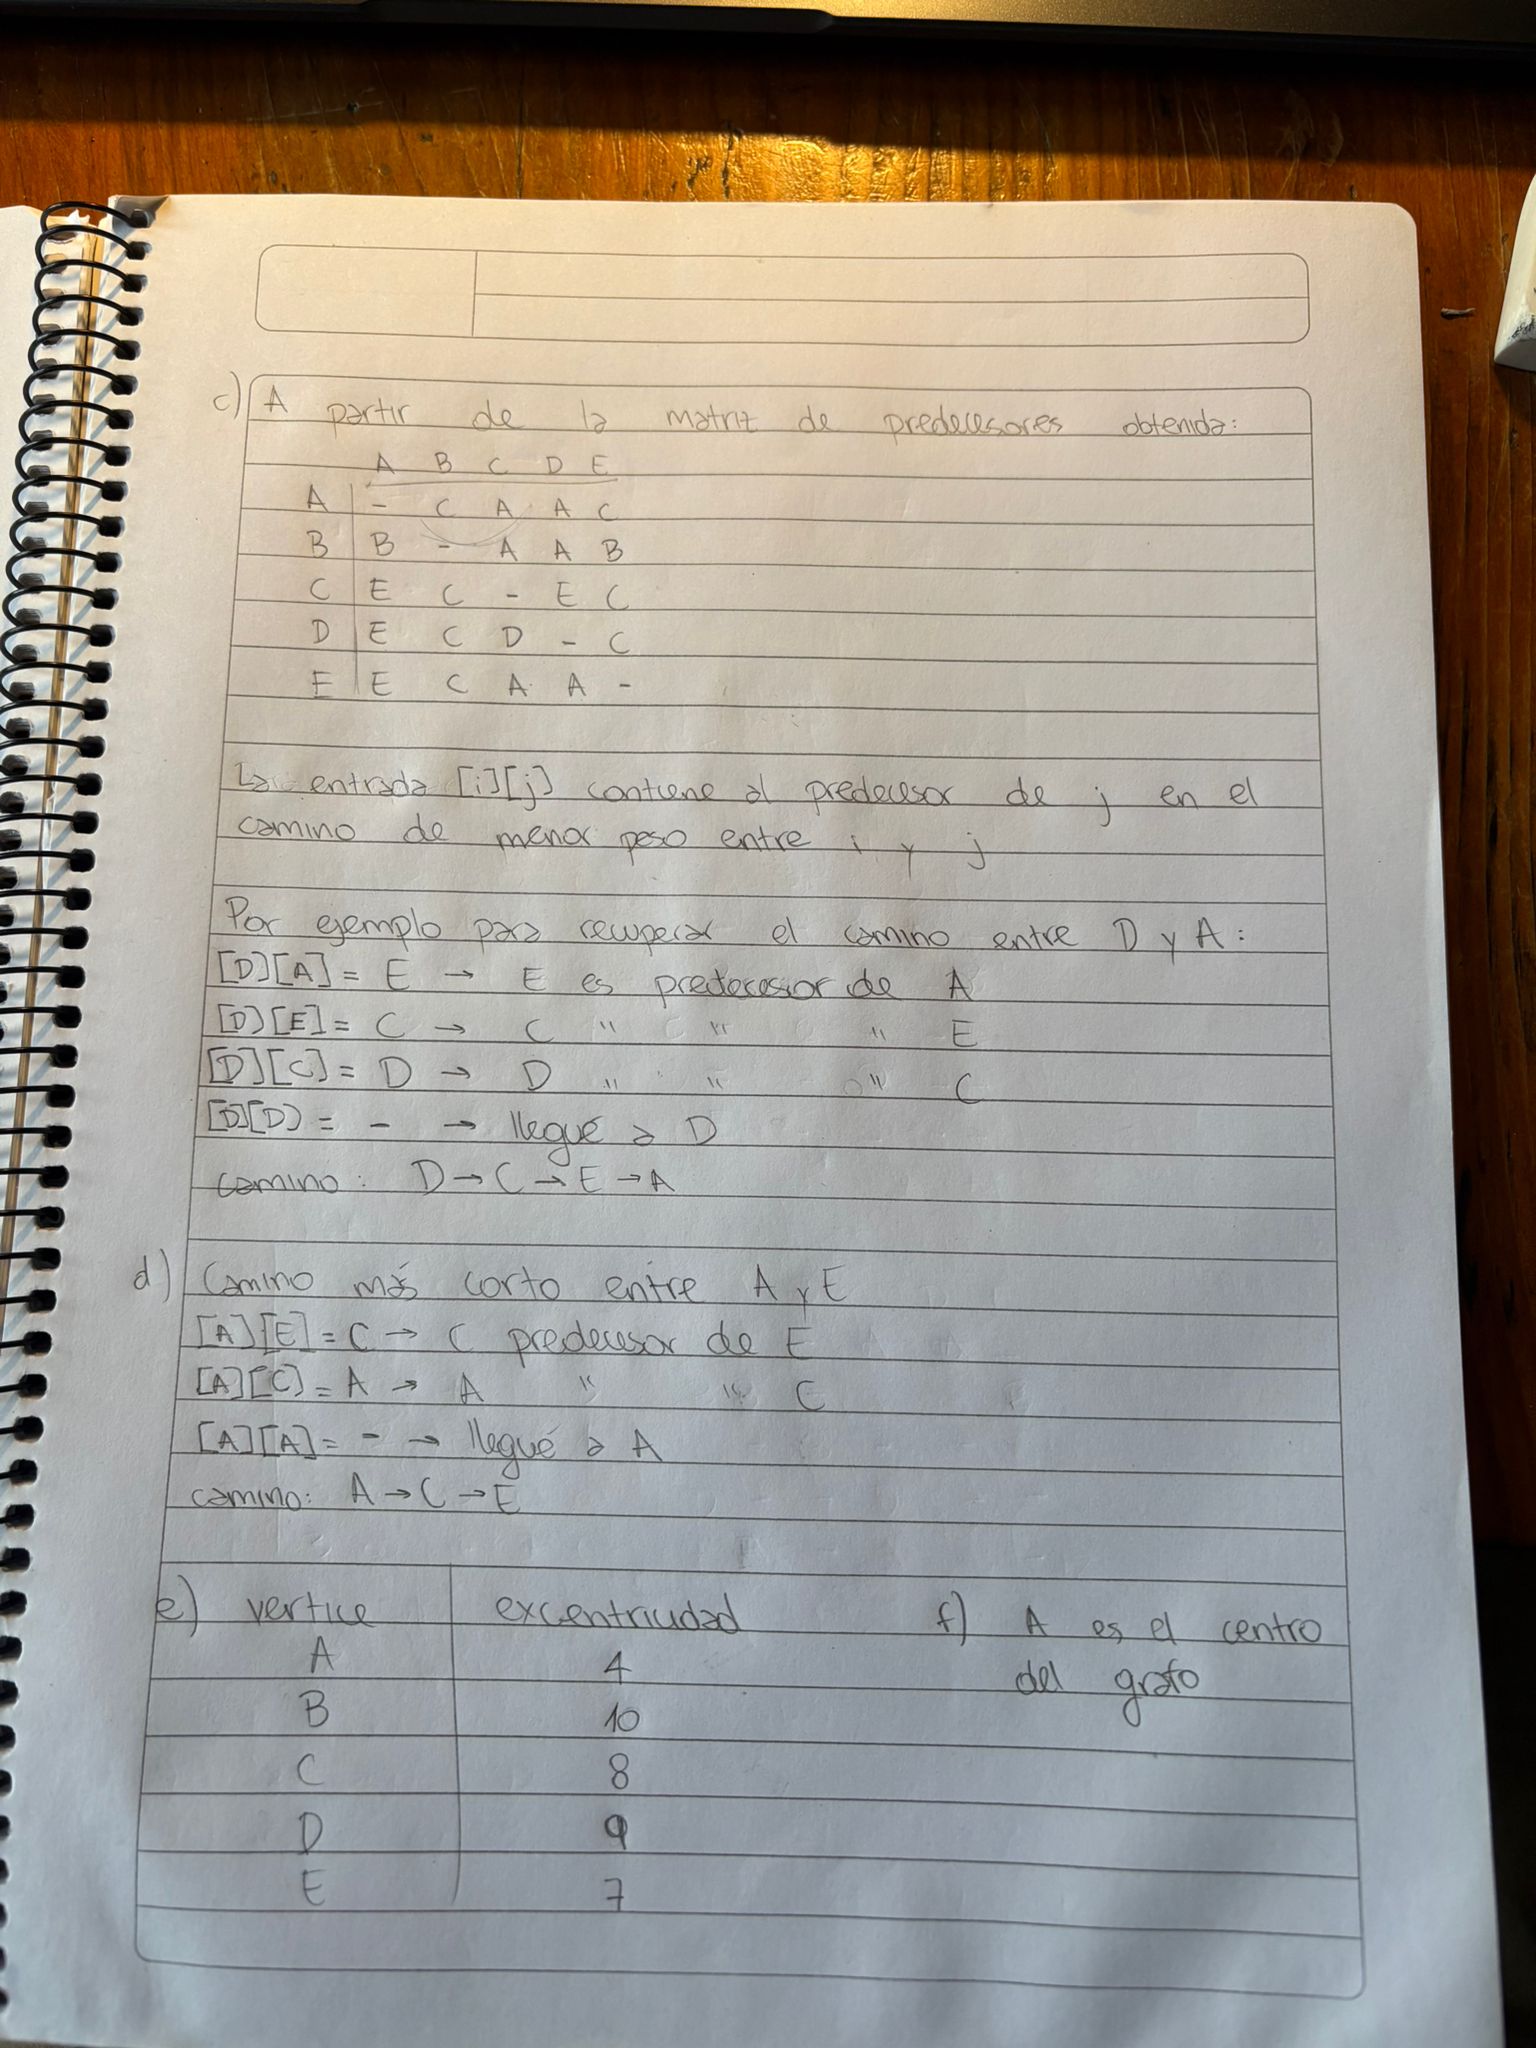 c) A partir de la matriz de predecesores obtenida:
A B C D E
A - C A A C
B B - A A B
C E C - E C
D E C D - C
E E C A A -
La entrada [i][j] contiene al predecesor de j en el
camino de menor peso entre i y j
Por ejemplo para recuperar el camino entre D y A:
[D][A] = E → E es predecesor de A
[D][E] = C → C " " " E
[D][C] = D → D " " " C
[D][D] = - → llegué a D
camino: D → C → E → A
d) Camino más corto entre A y E
[A][E] = C → C predecesor de E
[A][C] = A → A " " C
[A][A] = - → llegué a A
camino: A → C → E
e) vertice excentricidad f) A es el centro
A 4 del grafo
B 10
C 8
D 9
E 7